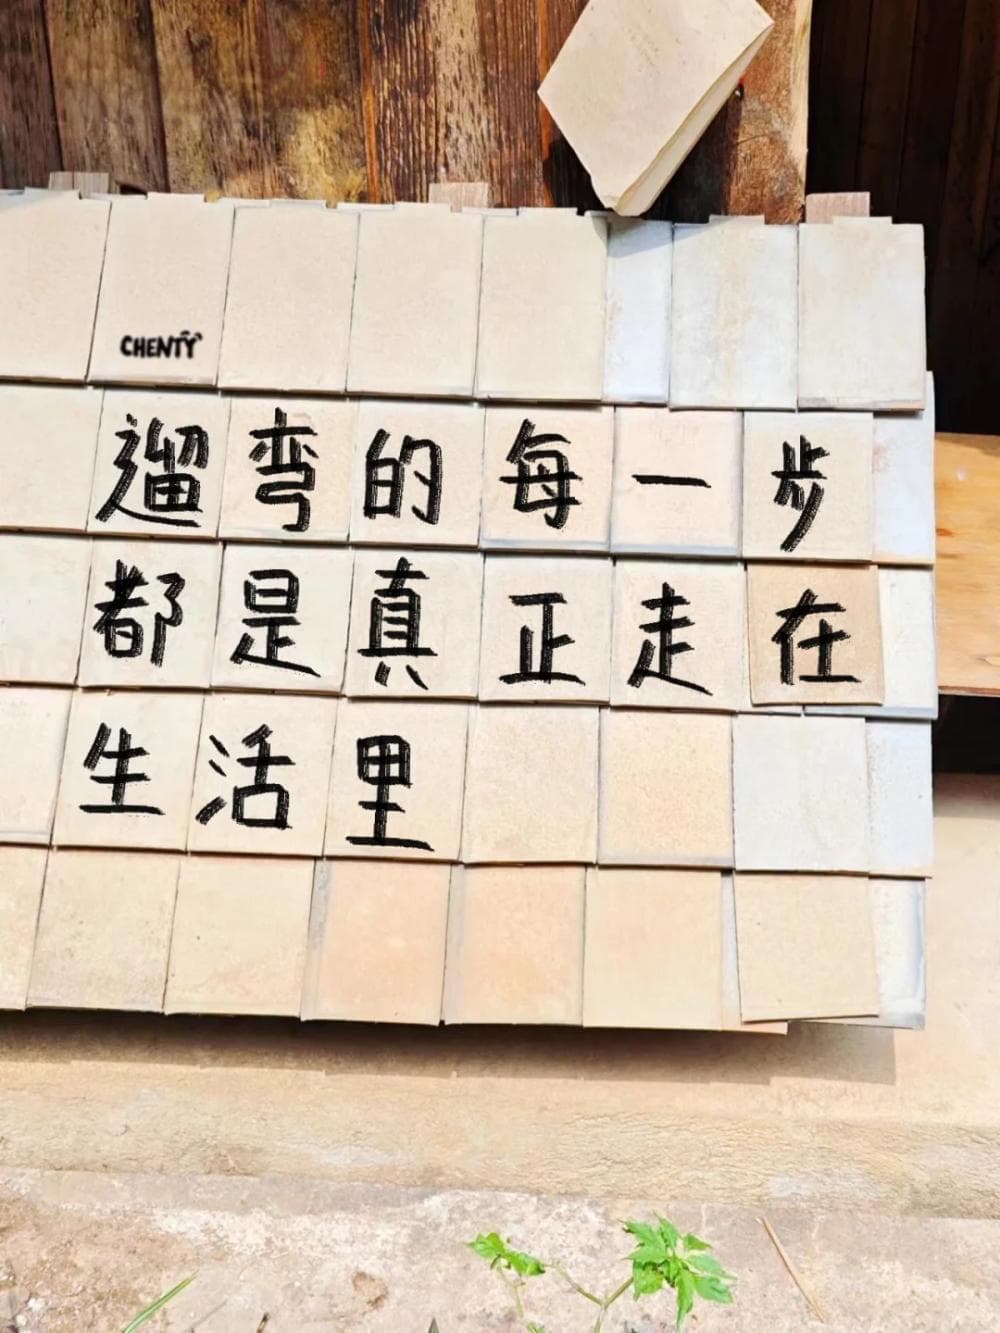 CHENTY
遛弯的每一步
都是真正走在
生活里